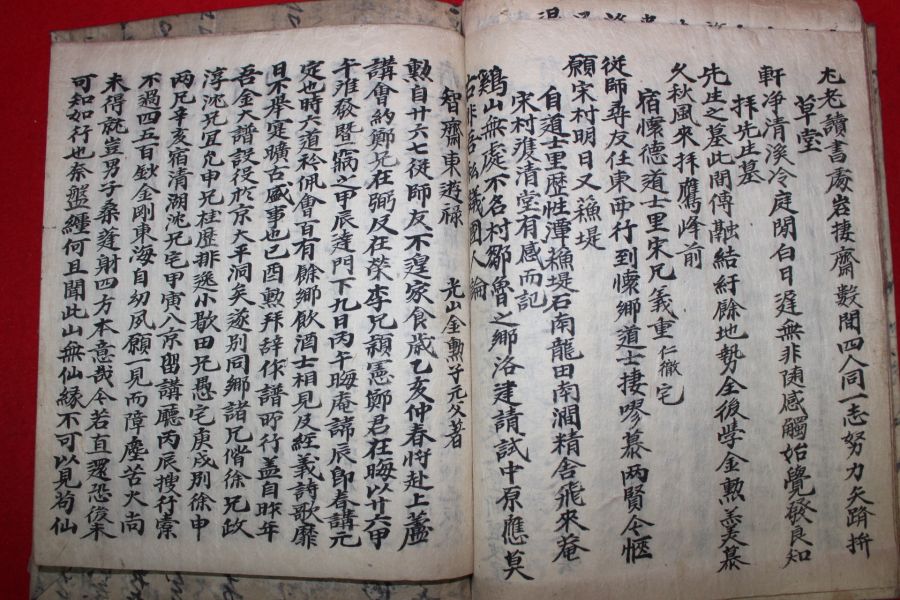 尤老讀書處岩捿齋數間四人同一志努力矢躋拚
草堂
軒净清溪冷庭閑白日遲無非随感觸始覺發良知
拜先生墓
先生之墓此間傳融結紆餘地勢全後學金勲羨慕
久秋風来拜鷹峰前
宿懷德道士里宋兄義重仁徹宅
從師尋友任東西行到懷鄉道士捿嘐慕两賢今愜
願宋村明日又漁堤
自道士里歷性潭漁堤石南龍田南澗精舍飛來菴
宋村復清堂有感而記
鷄山無處不名村鄒魯之鄉洛建請試中原應莫
古非吾 義國人論
智齋東遊禄
光山金勲子元父著
勲自廿六七從師友不遑家食歲乙亥仲春将赴上蘆
講會約鄭兄在弼及在榮李兄穎憲鄭君在晦以廿六甲
午进發曁病之甲辰逹門下九日丙午晦庵諦辰即春講元
定也時六道衿佩會百有餘鄉飲酒士相見及經義詩歌靡
日不舉寔曠古盛事也己酉勲拜辞作譜所行盖自昨年
吾金大譜設役於京大平洞矣遂别同鄉諸兄偕徐兄政
淳沈兄宜允申兄桂歷排逃小歇田兄愚宅庚戌别徐申
两兄辛亥宿清湖沈兄宅甲寅入京畄講聽丙辰搜行橐
不過四五百欽金剛東海自幼夙願一見而障塵苦火尚
未得就豈男子桑蓬射四方本意哉今若直還恐後来
可知如行也奈盤纏何且聞此山無仙縁不可以見苟仙